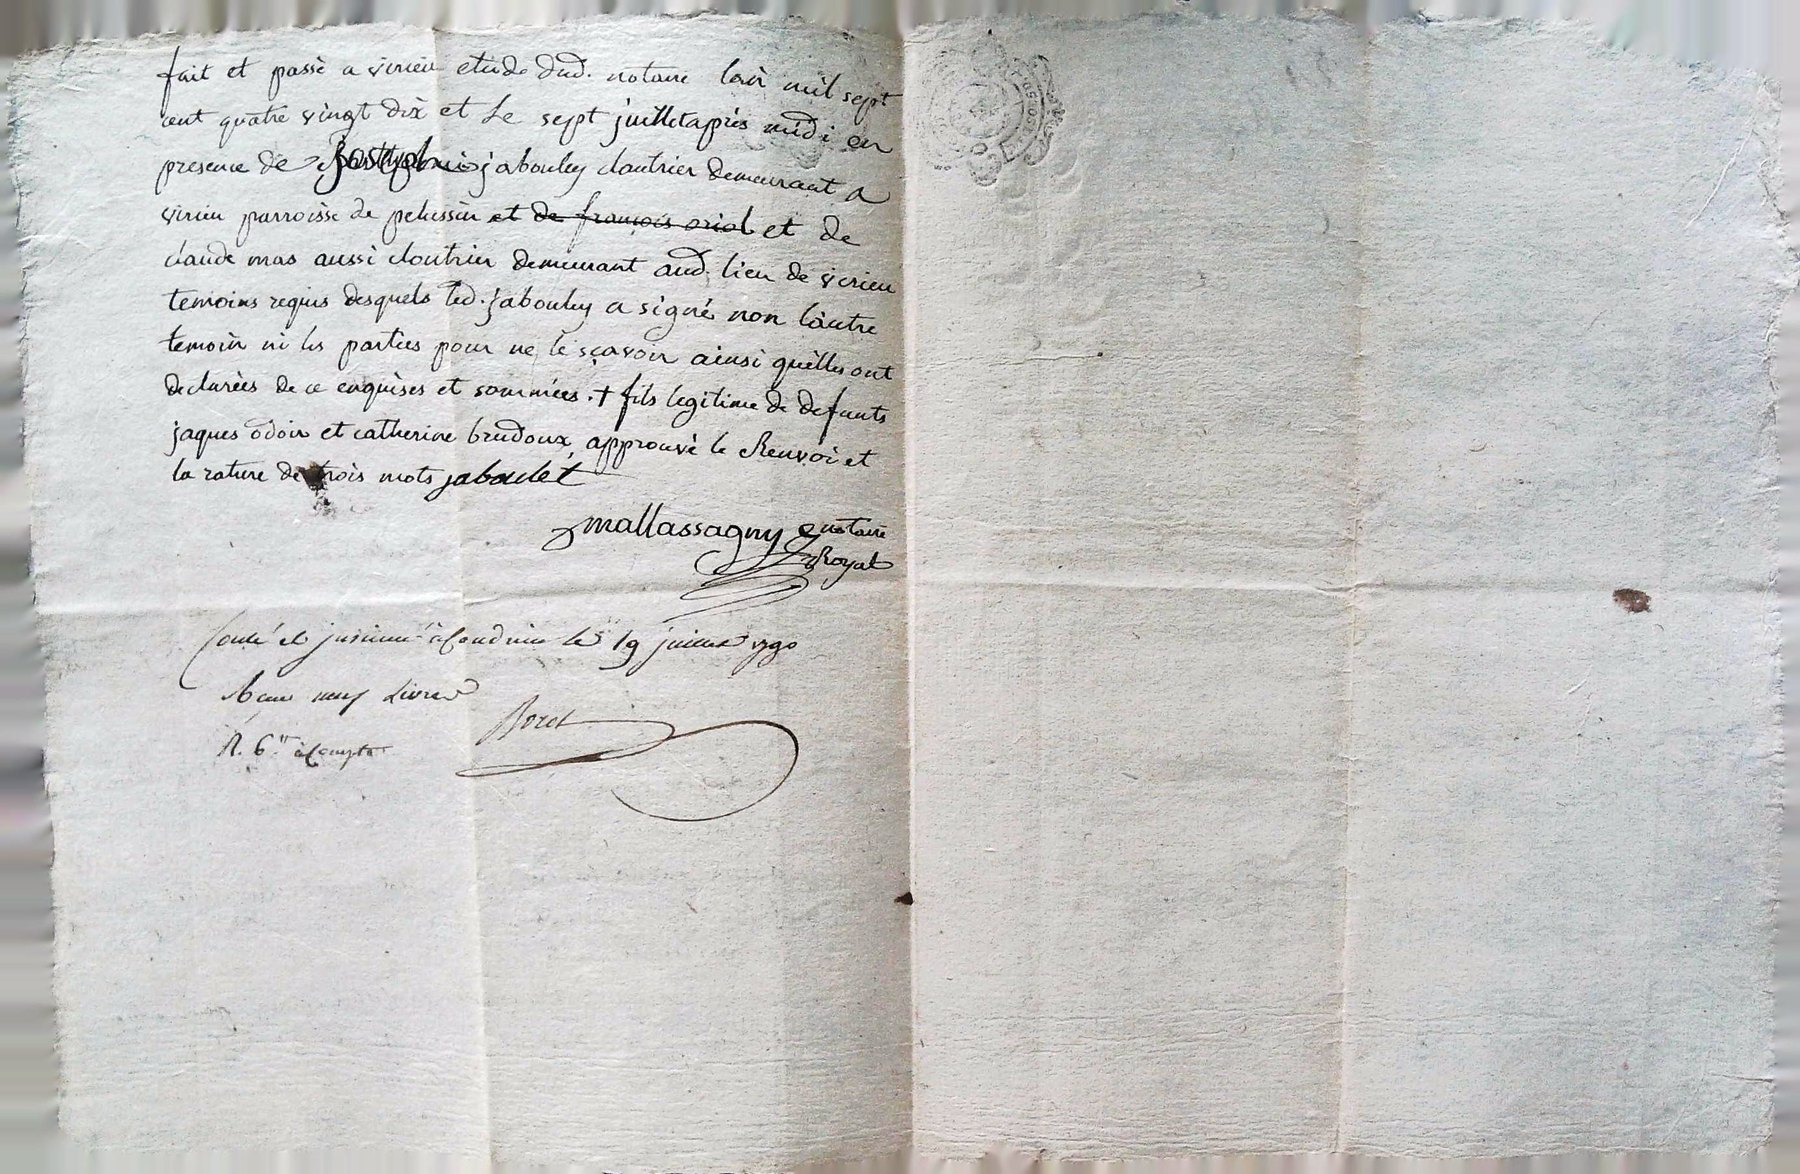 fait et passé a virieu etude dud. notaire l'an mil sept
cent quatre vingt dix et le sept juillet après midi en
presence de jabouley cloutrier demeurant a
virieu parroisse de pelussin et de françois oriol et de
claude mas aussi cloutrier demeurant aud. lieu de virieu
temoins requis desquels led. jabouley a signé non l'autre
temoin ni les parties pour ne le sçavoir ainsi qu'elles ont
declarées de ce enquises et sommées . + fils legitime de defunts
jaques odoin et catherine brudoux approuvé le Renvoi et
la rature de trois mots jaboulet
mallassagny notaire
Royal
à Condrieu le 19 juillet 1790
neuf Livres
R. 6 à Compte